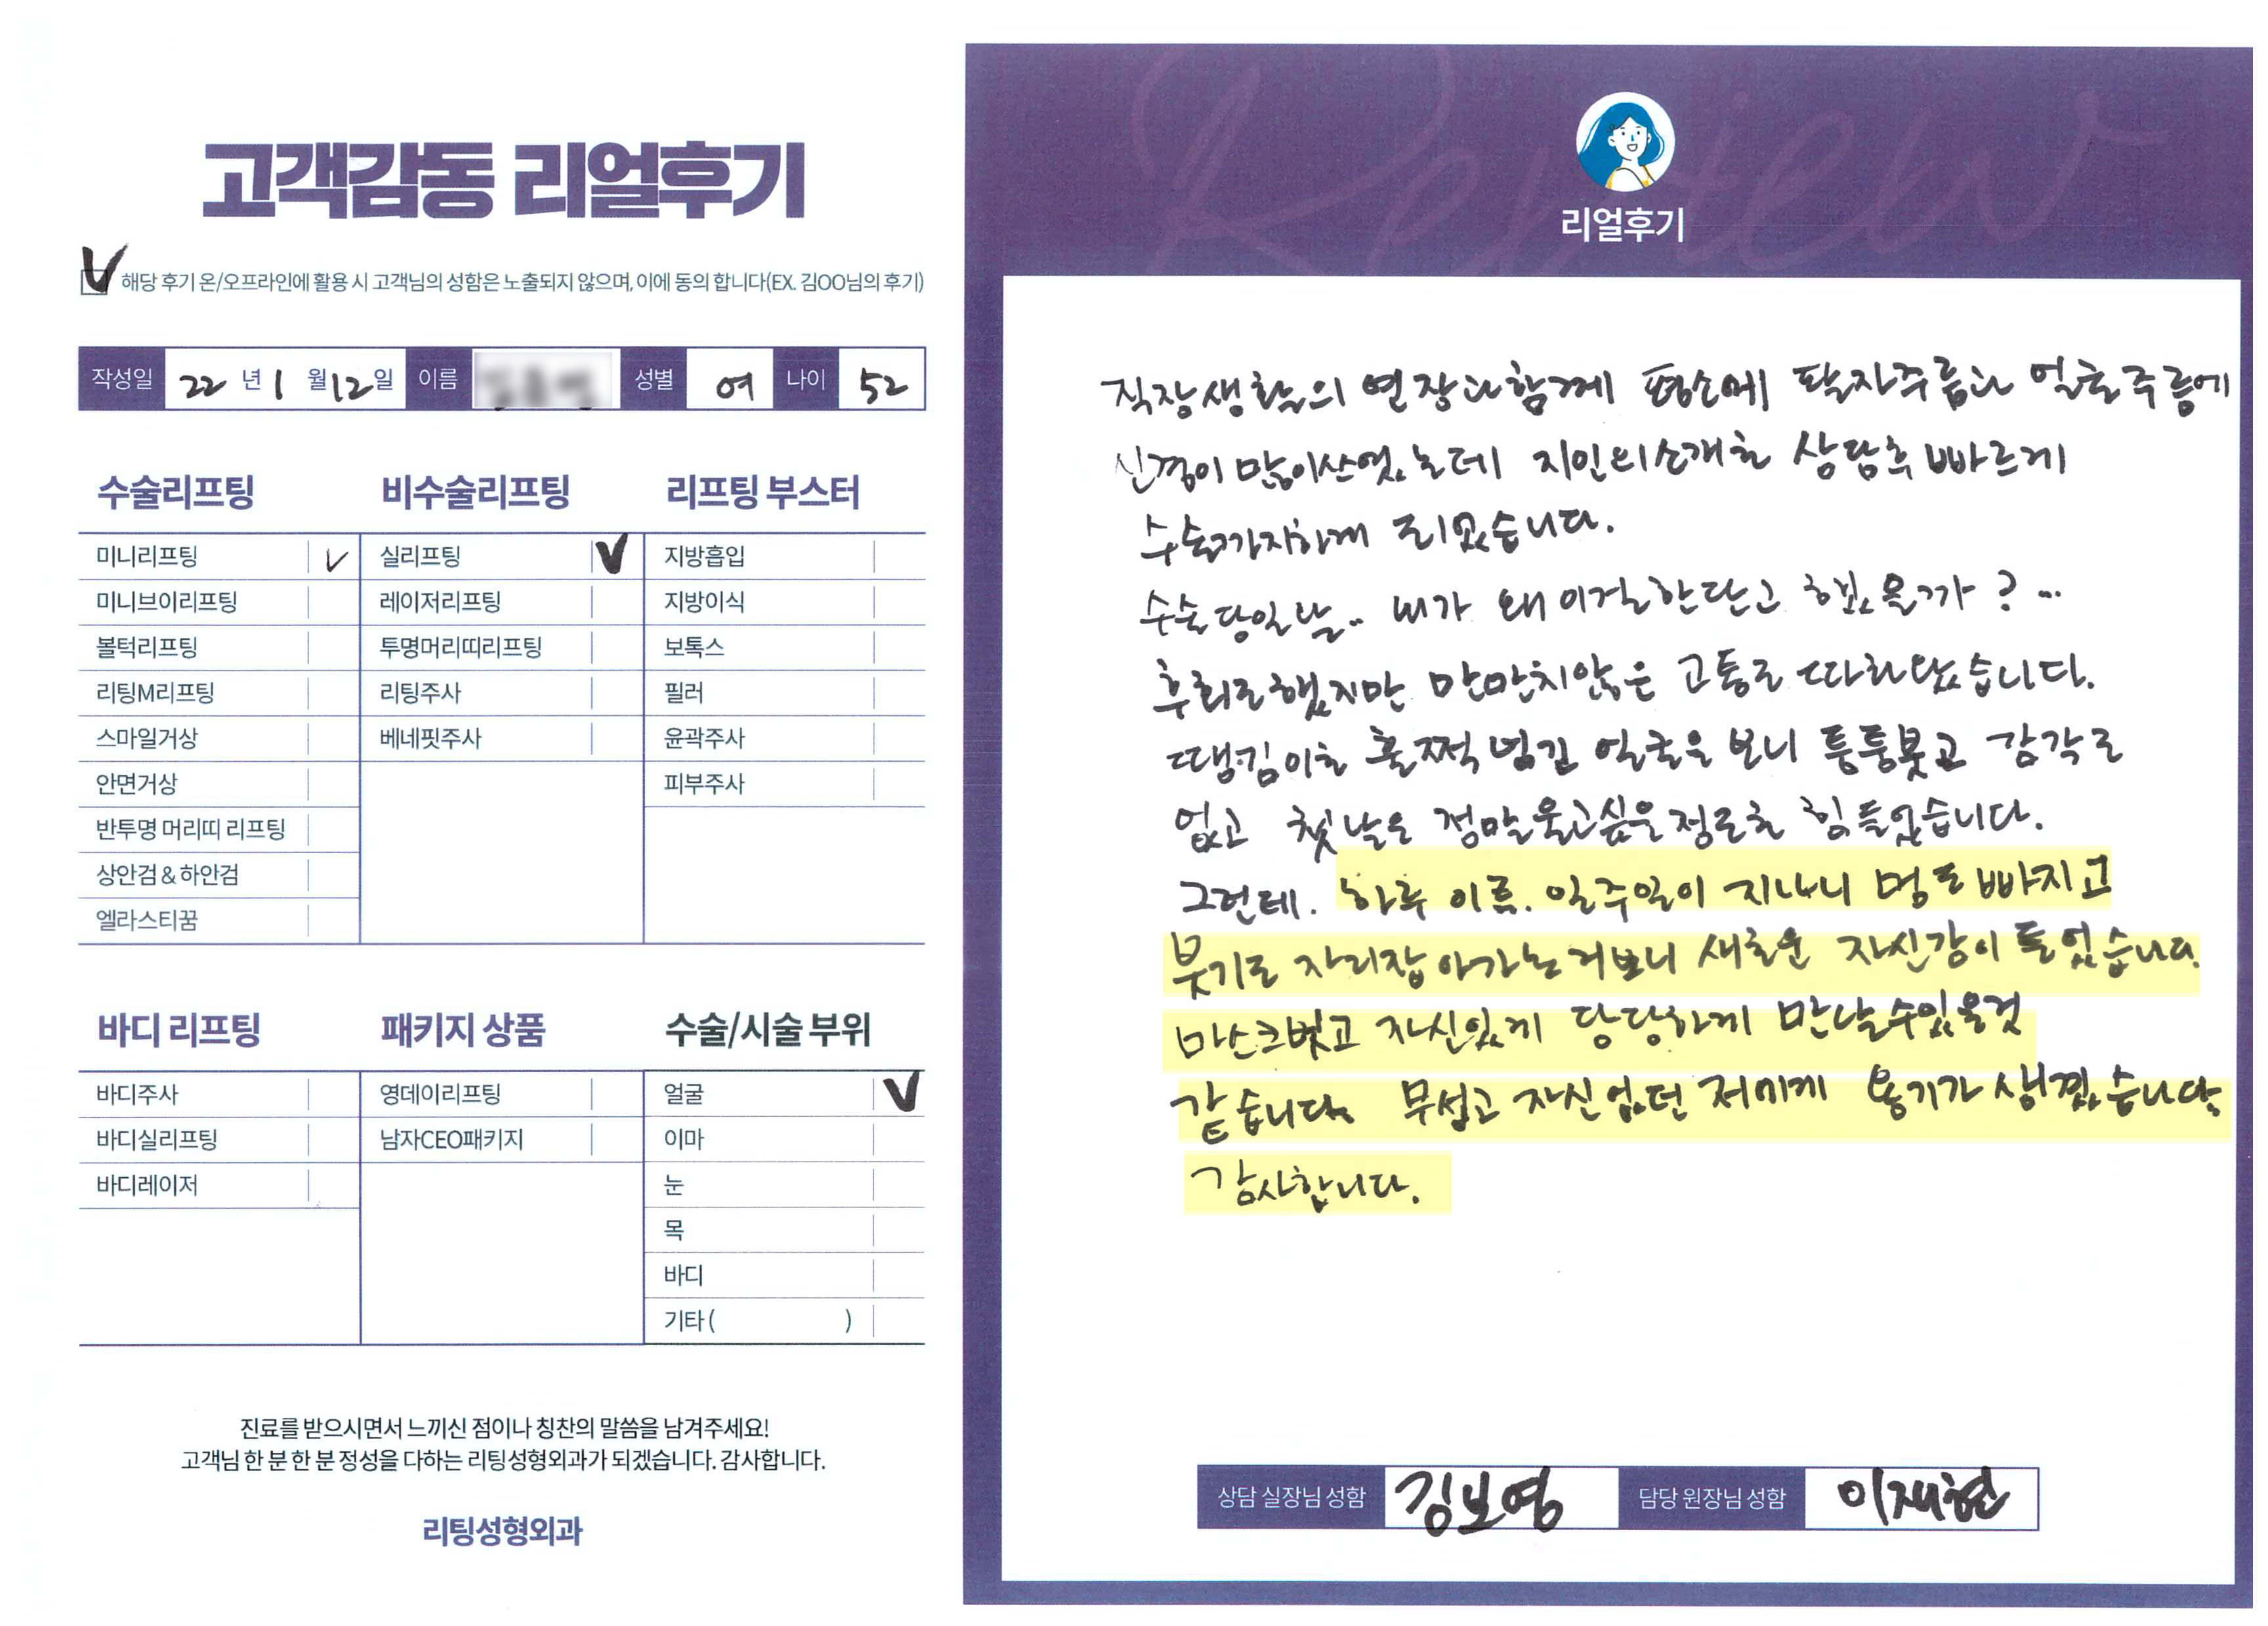 고객감동 리얼후기
해당 후기 온/오프라인에 활용 시 고객님의 성함은 노출되지 않으며, 이에 동의 합니다(EX. 김OO님의 후기)
작성일 22 년 1 월 12 일 이름 성별 여 나이 52
수술리프팅
미니리프팅
미니브이리프팅
볼턱리프팅
리팅M리프팅
스마일거상
안면거상
반투명 머리띠 리프팅
상안검 & 하안검
엘라스티꿈
비수술리프팅
실리프팅
레이저리프팅
투명머리띠리프팅
리팅주사
베네핏주사
리프팅 부스터
지방흡입
지방이식
보톡스
필러
윤곽주사
피부주사
바디 리프팅
바디주사
바디실리프팅
바디레이저
패키지 상품
영데이리프팅
남자CEO패키지
수술/시술 부위
얼굴
이마
눈
목
바디
기타 ( )
진료를 받으시면서 느끼신 점이나 칭찬의 말씀을 남겨주세요!
고객님 한 분 한 분 정성을 다하는 리팅성형외과가 되겠습니다. 감사합니다.
리팅성형외과
Review
리얼후기
직장생활의 연장과함께 평소에 팔자주름과 얼굴주름에
신경이 많이쓰였는데 지인의소개로 상담후 빠르게
수술까지하게 되었습니다.
수술 당일날.. 내가 왜 이걸한다고 했을까? ...
후회도했지만 만만치않은 고통도 따라왔습니다.
땡김이로 훌쩍 넘긴 얼굴을 보니 퉁퉁붓고 감각도
없고 첫날은 정말울고싶을정도로 힘들었습니다.
그런데. 하루 이틀. 일주일이 지나니 멍도 빠지고
붓기도 자리잡아가는거보니 새로운 자신감이 들었습니다.
마스크벗고 자신있게 당당하게 만날수있을것
같습니다. 무섭고 자신없던 저에게 용기가 생겼습니다
감사합니다.
상담 실장님 성함 김보영 담당 원장님 성함 이재현